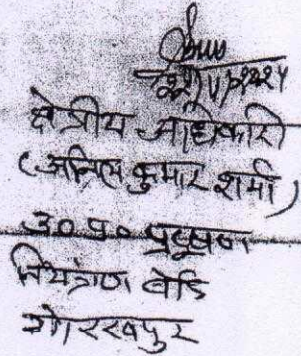 क्षेत्रीय अधिकारी
(अनिल कुमार शर्मा)
उ० प्र० प्रदूषण
नियंत्रण बोर्ड
गोरखपुर